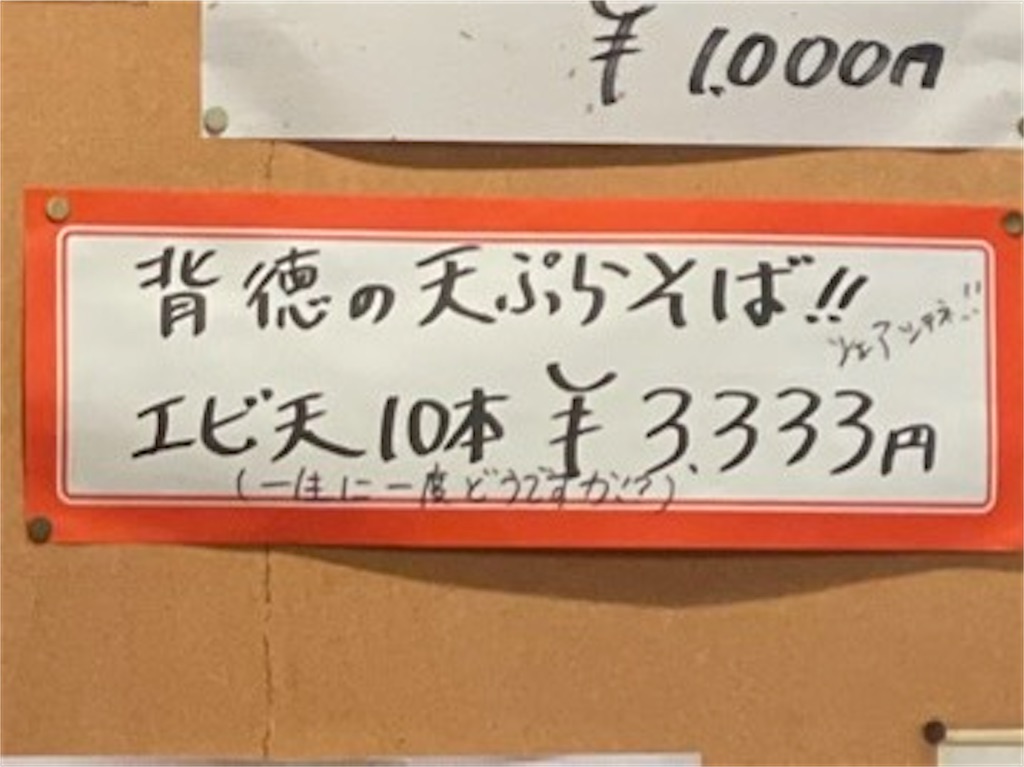 ¥ 1,000円
背徳の天ぷらそば!!
シェアシテネ!!
エビ天10本 ¥ 3,333円
(一生に一度どうですか!?)